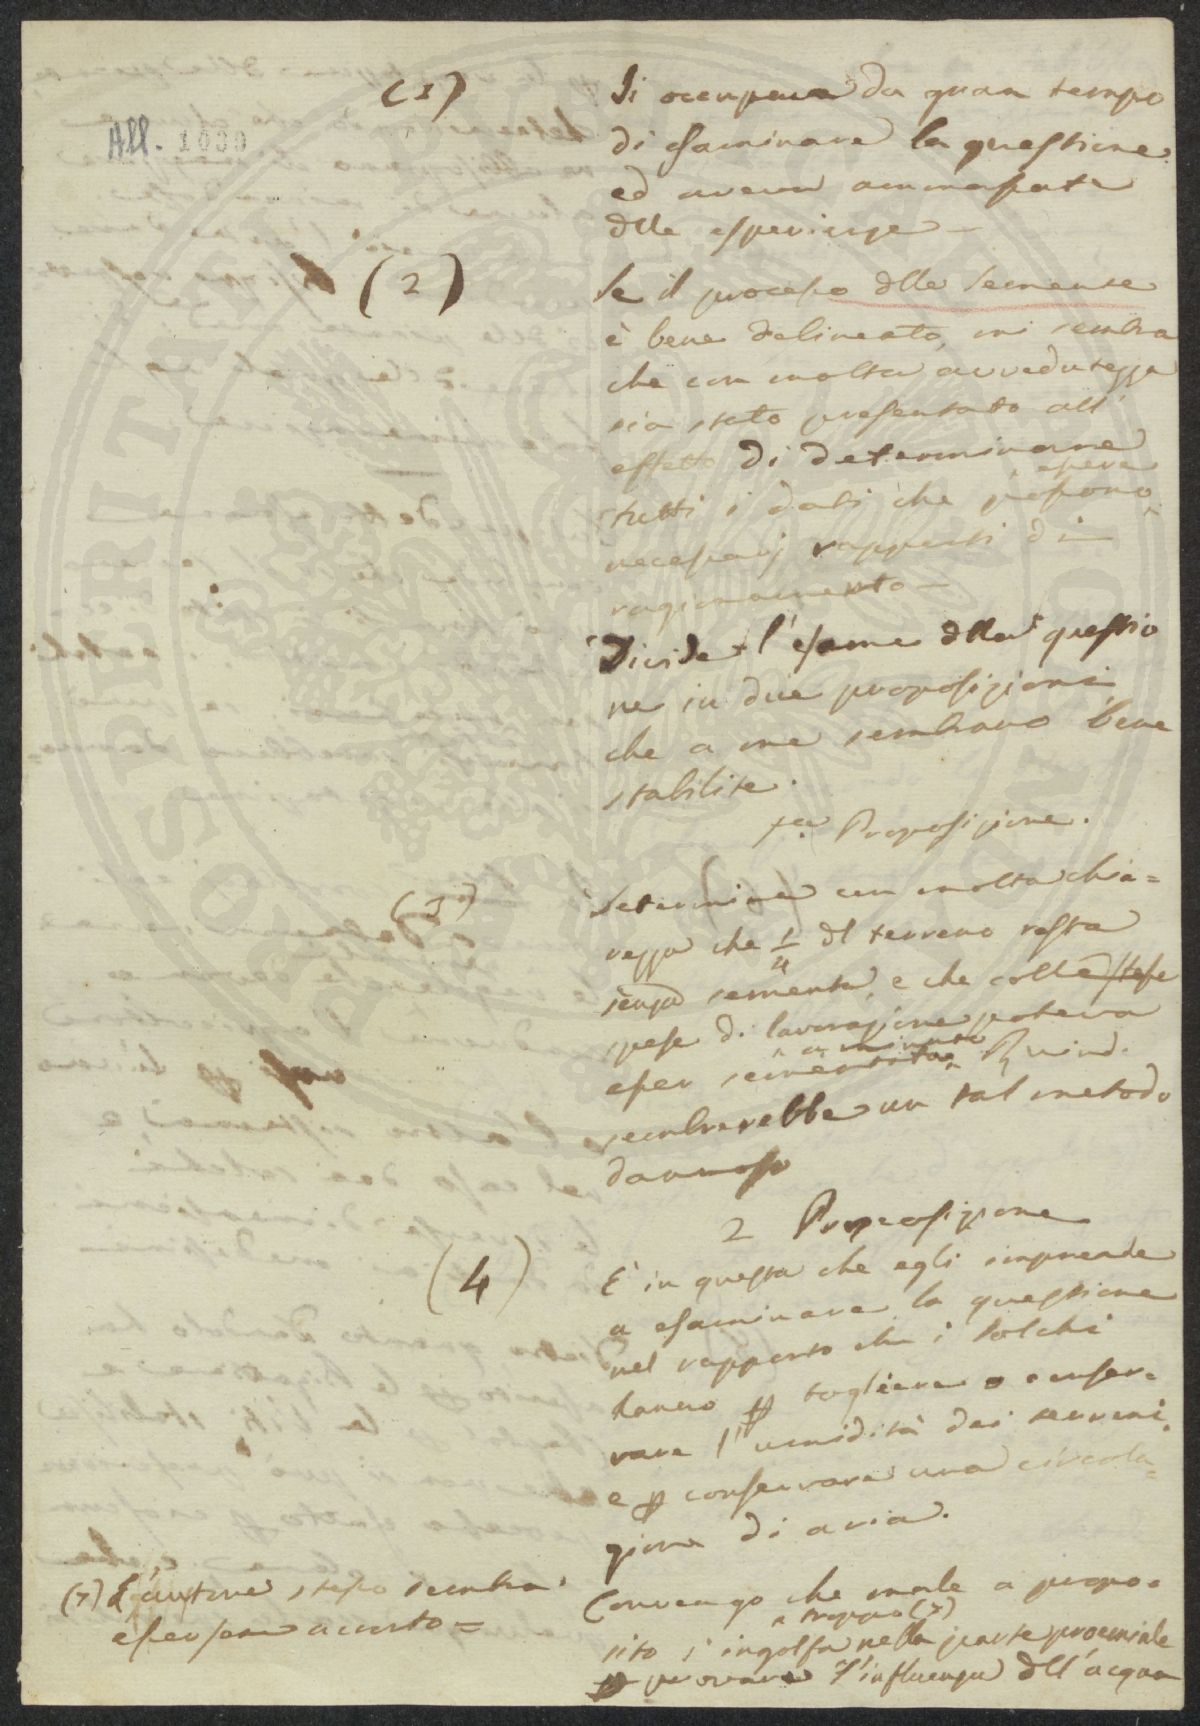 (1)
All. 1030
Si occupava da quan tempo
di esaminare la questione
ed aveva ammassate
dlle esperienze —
(2)
Se il processo dlle semente
è bene delineato, mi sembra
che con molta avvedutezza
sia stato presentato all'
effetto di determinare
tutti i dati che possono essere
necessarj rapporti di
ragionamento —
Divide l'esame dlla questio
ne in due proposizioni
che a me sembrano bene
stabilite.
1.a Proposizione.
(3)
Determina con molta chia=
rezza che 1/4 dl terreno resta
senza sementa, e che colle stesse
spese di lavorazione poteva
esser sementato a minuto Quind.
sembrerebbe un tal metodo
dannoso
2 Proposizione
(4)
È in questa che egli imprende
a esaminare la questione
nel rapporto che i solchi
hanno p togliere o conser=
vare l'umidità dei terreni,
e p conservare una circola=
zione di aria.
Convengo che male a propo=
sito s'ingolfa troppo (7) nella parte proemiale
p provare l'influenza dll'acqua
(7) L'autore stesso sembra
essersene accorto =